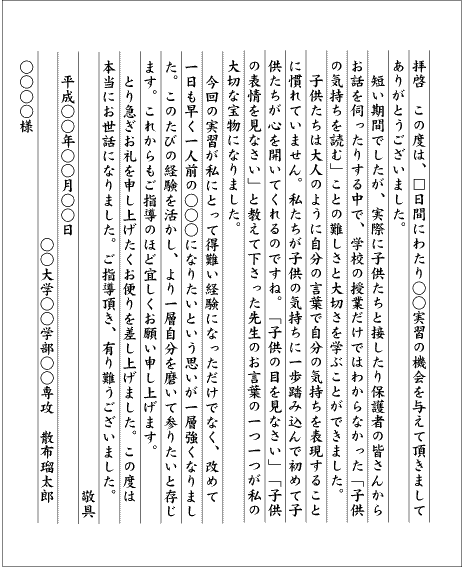 拝啓　この度は、□日間にわたり○○実習の機会を与えて頂きまして
ありがとうございました。
　短い期間でしたが、実際に子供たちと接したり保護者の皆さんから
お話を伺ったりする中で、学校の授業だけではわからなかった「子供
の気持ちを読む」ことの難しさと大切さを学ぶことができました。
　子供たちは大人のように自分の言葉で自分の気持ちを表現すること
に慣れていません。私たちが子供の気持ちに一歩踏み込んで初めて子
供たちが心を開いてくれるのですね。「子供の目を見なさい」「子供
の表情を見なさい」と教えて下さった先生のお言葉の一つ一つが私の
大切な宝物になりました。
　今回の実習が私にとって得難い経験になっただけでなく、改めて
一日も早く一人前の○○○になりたいという思いが一層強くなりまし
た。このたびの経験を活かし、より一層自分を磨いて参りたいと存じ
ます。これからもご指導のほど宜しくお願い申し上げます。
　とり急ぎお礼を申し上げたくお便りを差し上げました。この度は
本当にお世話になりました。ご指導頂き、有り難うございました。
敬具
平成○○年○○月○○日
○○大学○○学部○○専攻　散布瑠太郎
○○○○様